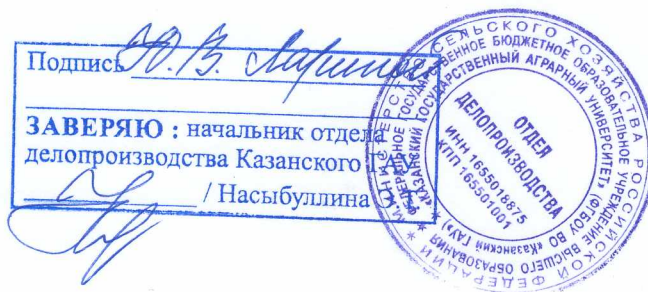 Подпись Ю.В. Лариной
ЗАВЕРЯЮ : начальник отдела
делопроизводства Казанского ГАУ
/ Насыбуллина
МИНИСТЕРСТВО СЕЛЬСКОГО ХОЗЯЙСТВА РОССИЙСКОЙ ФЕДЕРАЦИИ *
ФЕДЕРАЛЬНОЕ ГОСУДАРСТВЕННОЕ БЮДЖЕТНОЕ ОБРАЗОВАТЕЛЬНОЕ УЧРЕЖДЕНИЕ ВЫСШЕГО ОБРАЗОВАНИЯ
«КАЗАНСКИЙ ГОСУДАРСТВЕННЫЙ АГРАРНЫЙ УНИВЕРСИТЕТ» (ФГБОУ ВО «Казанский ГАУ») *
ОТДЕЛ
ДЕЛОПРОИЗВОДСТВА
ИНН 1655018875
КПП 165501001